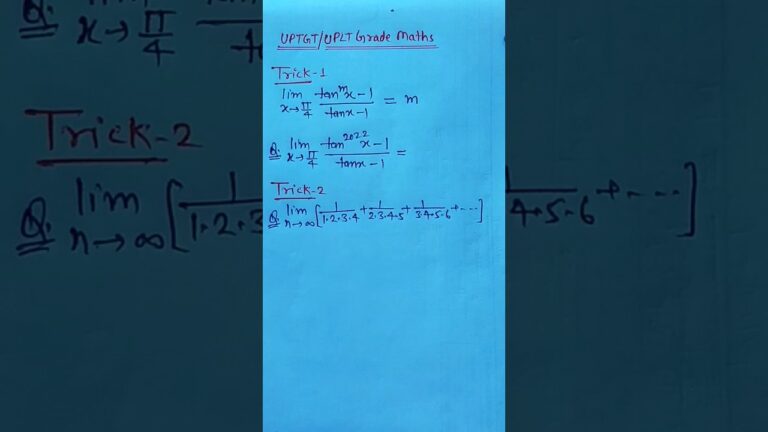 UPTGT/UPLT Grade Maths
Trick-1
lim x→π/4 (tan^m x - 1)/(tanx - 1) = m
Q. lim x→π/4 (tan^2022 x - 1)/(tanx - 1) =
Trick-2
Q. lim n→∞ [1/(1·2·3·4) + 1/(2·3·4·5) + 1/(3·4·5·6) + ----]